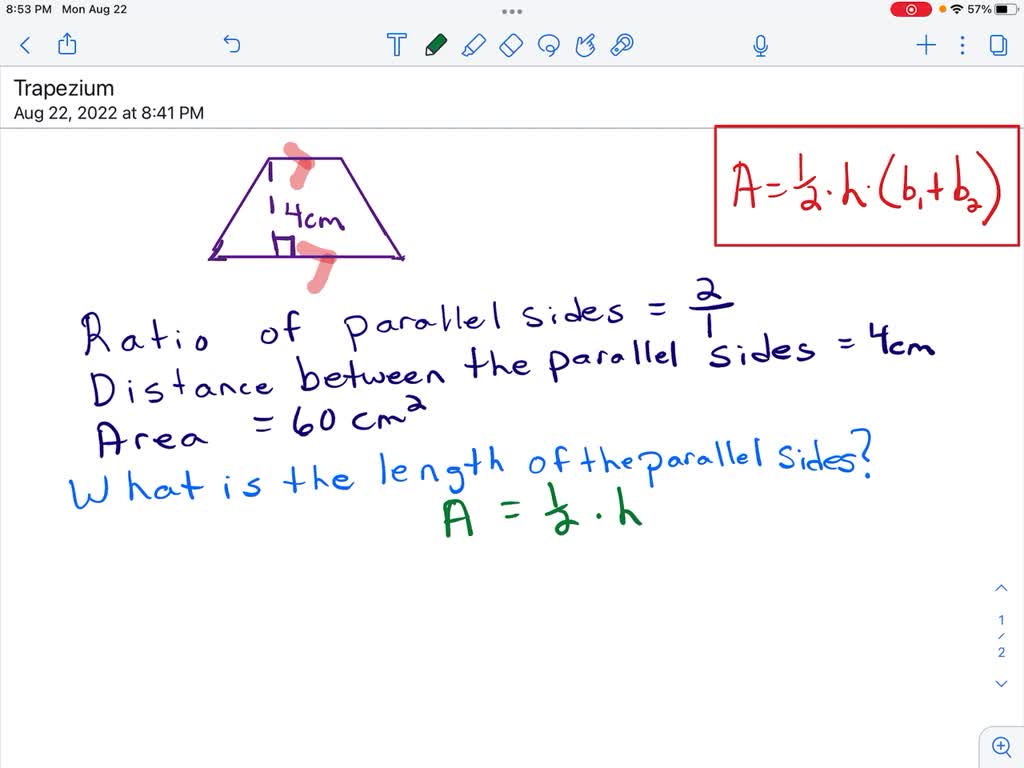 8:53 PM Mon Aug 22
57%
T
Trapezium
Aug 22, 2022 at 8:41 PM
4cm
A = 1/2 · h · (b₁ + b₂)
Ratio of parallel sides = 2/1
Distance between the parallel sides = 4cm
Area = 60 cm²
What is the length of the parallel sides?
A = 1/2 · h
1
/
2